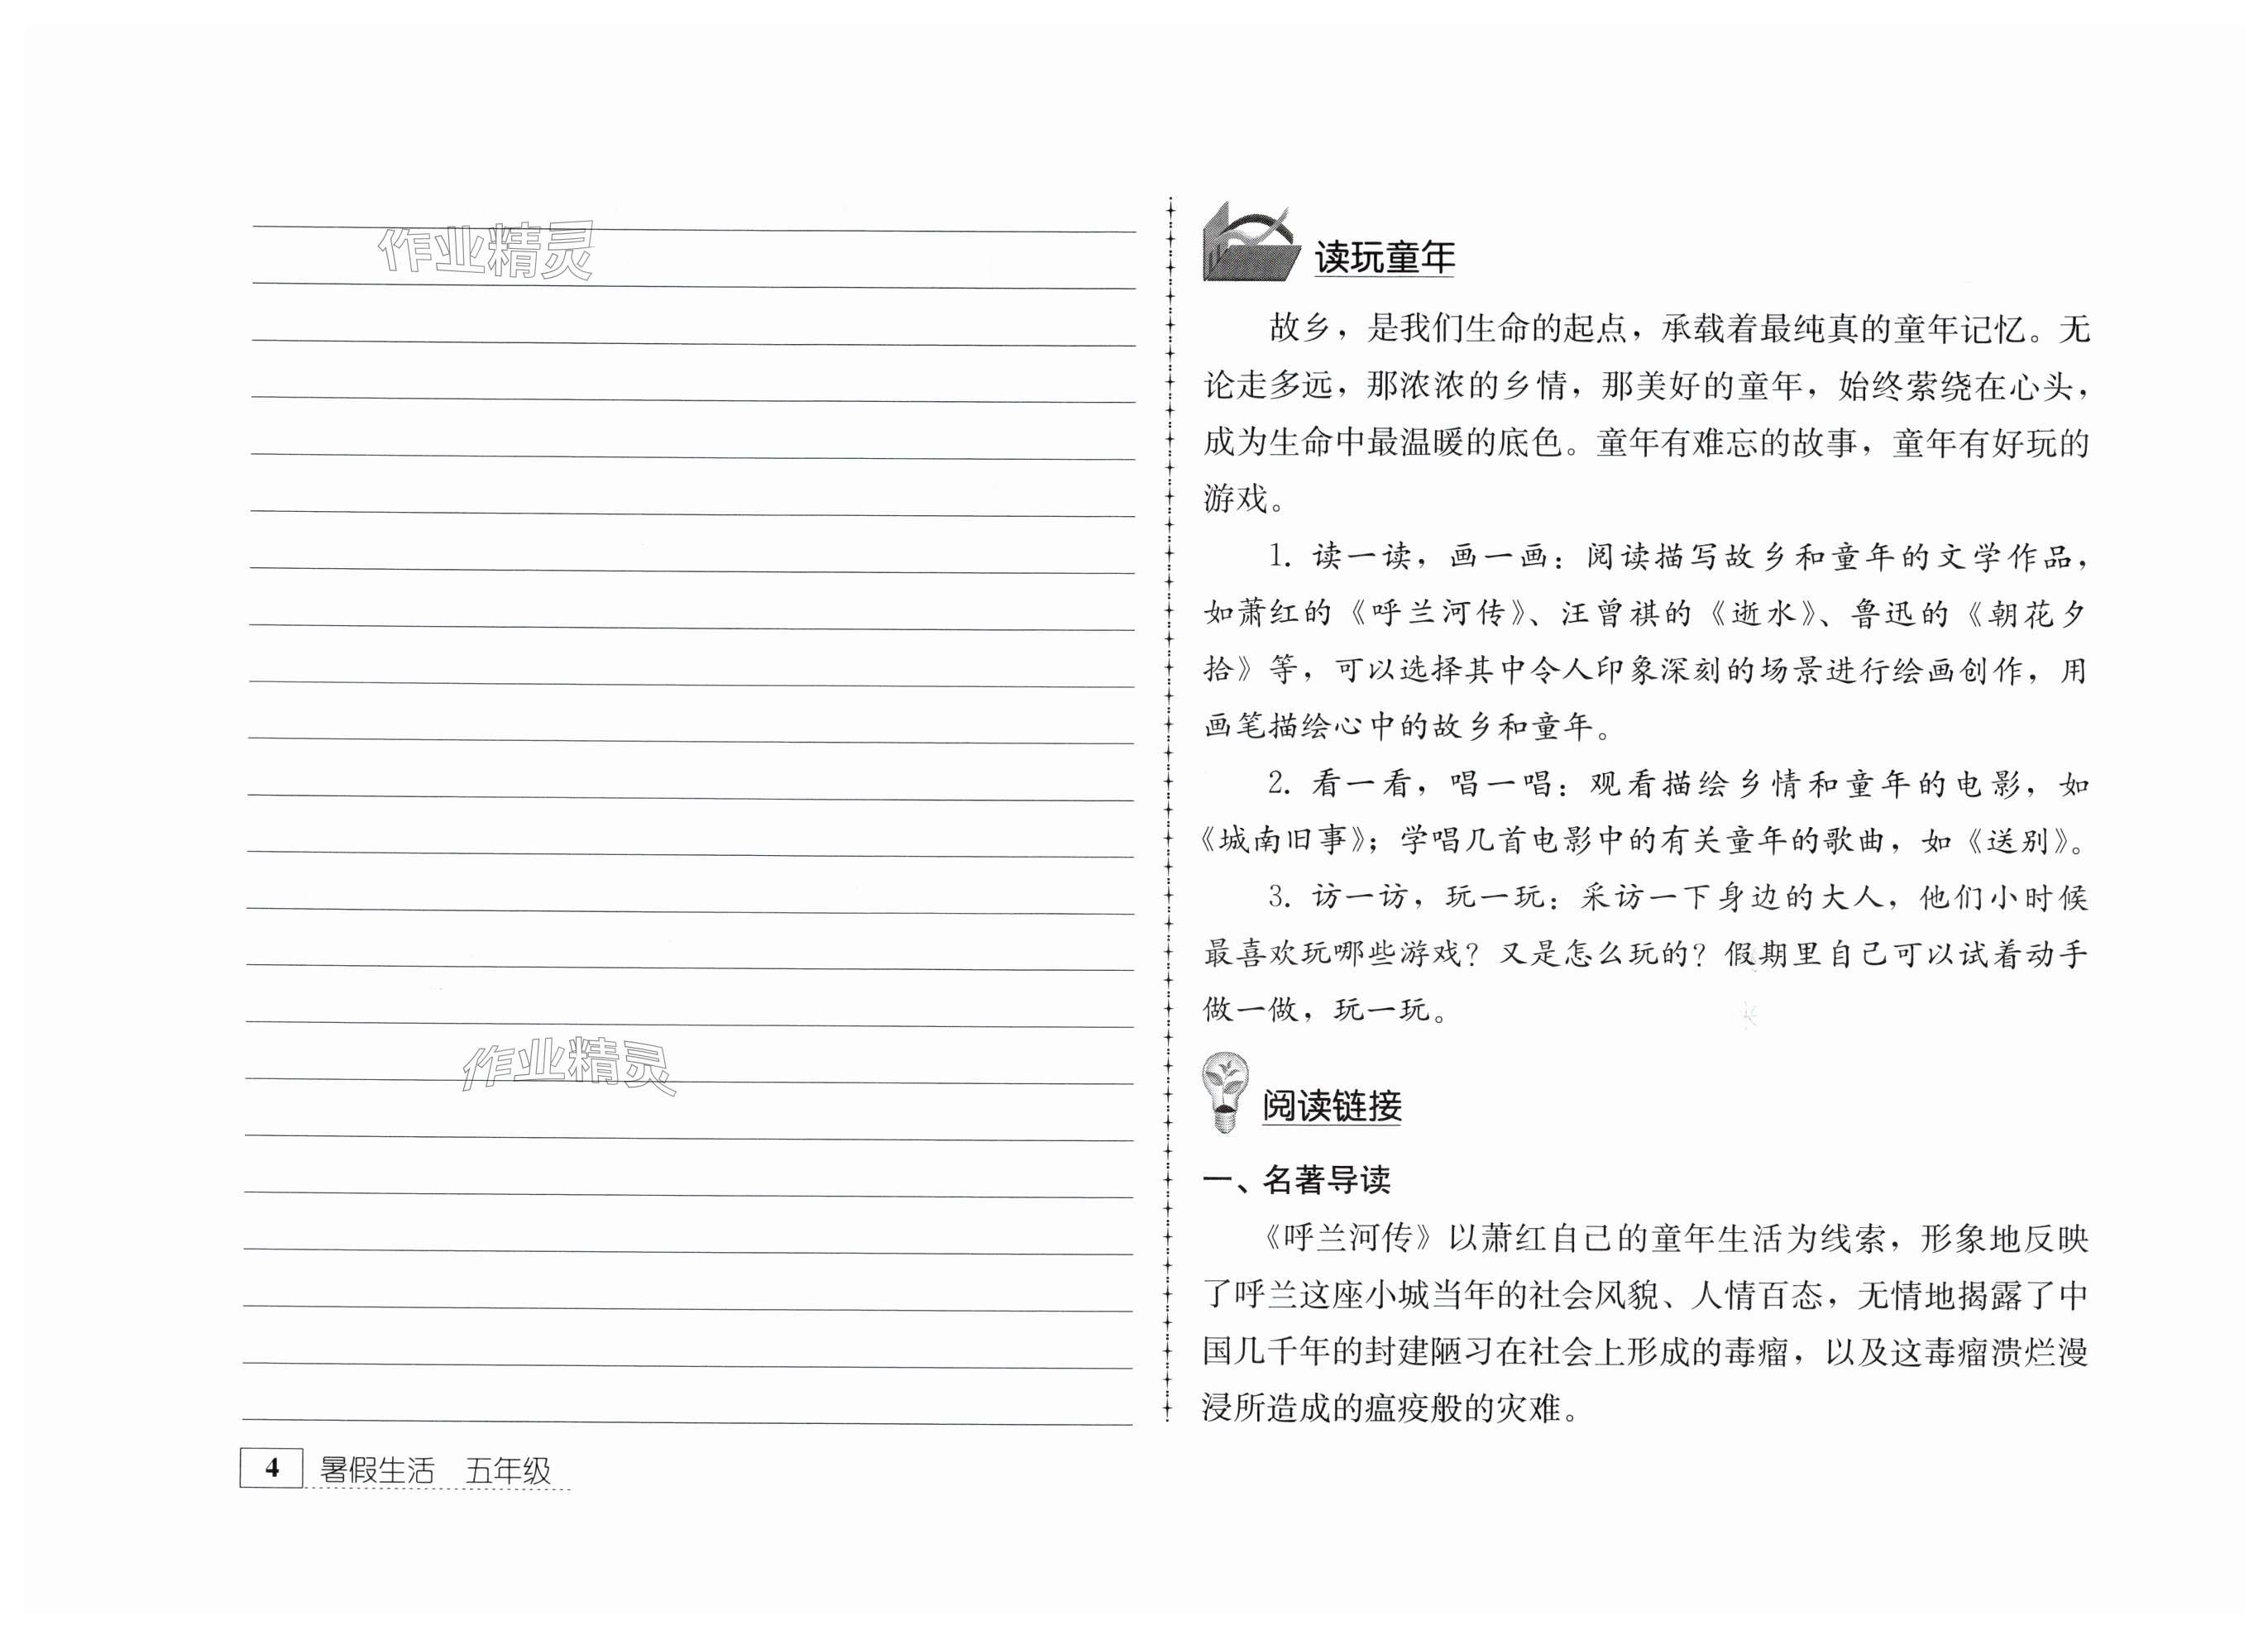 作业精灵
作业精灵
4 暑假生活 五年级
读玩童年
故乡，是我们生命的起点，承载着最纯真的童年记忆。无
论走多远，那浓浓的乡情，那美好的童年，始终萦绕在心头，
成为生命中最温暖的底色。童年有难忘的故事，童年有好玩的
游戏。
1. 读一读，画一画：阅读描写故乡和童年的文学作品，
如萧红的《呼兰河传》、汪曾祺的《逝水》、鲁迅的《朝花夕
拾》等，可以选择其中令人印象深刻的场景进行绘画创作，用
画笔描绘心中的故乡和童年。
2. 看一看，唱一唱：观看描绘乡情和童年的电影，如
《城南旧事》；学唱几首电影中的有关童年的歌曲，如《送别》。
3. 访一访，玩一玩：采访一下身边的大人，他们小时候
最喜欢玩哪些游戏？又是怎么玩的？假期里自己可以试着动手
做一做，玩一玩。
阅读链接
一、名著导读
《呼兰河传》以萧红自己的童年生活为线索，形象地反映
了呼兰这座小城当年的社会风貌、人情百态，无情地揭露了中
国几千年的封建陋习在社会上形成的毒瘤，以及这毒瘤溃烂漫
浸所造成的瘟疫般的灾难。